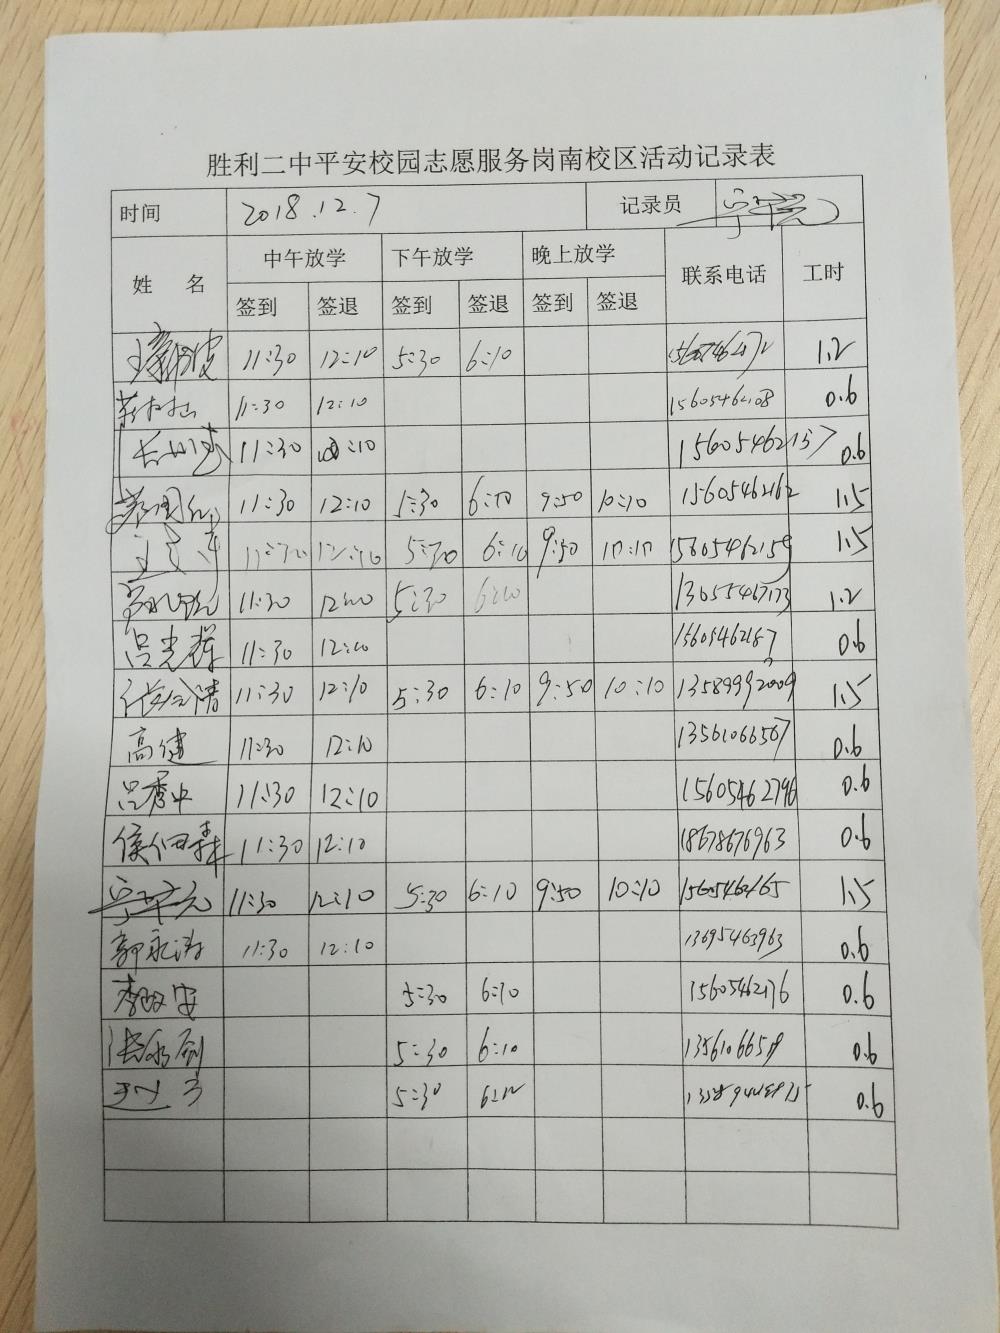 胜利二中平安校园志愿服务岗南校区活动记录表
时间 2018.12.7 记录员 宁军亮
姓 名 中午放学 下午放学 晚上放学 联系电话 工时
签到 签退 签到 签退 签到 签退
11:30 12:10 5:30 6:10 1.2
11:30 12:10 15605462108 0.6
11:30 10 15605462157 0.6
11:30 12:10 5:30 6:10 9:50 10:10 15605462162 1.5
11:30 12:10 5:30 6:10 9:50 10:10 15605462159 1.5
11:30 12:10 5:30 6:10 13655467173 1.2
吕光辉 11:30 12:10 15605462157 0.6
11:30 12:10 5:30 6:10 9:50 10:10 13589992009 1.5
高健 11:30 12:10 13561066567 0.6
吕秀中 11:30 12:10 15605462796 0.6
侯佃森 11:30 12:10 18678676963 0.6
宁军亮 11:30 12:10 5:30 6:10 9:50 10:10 15605462165 1.5
郭永涛 11:30 12:10 13695463963 0.6
5:30 6:10 15605462176 0.6
5:30 6:10 0.6
5:30 6:10 0.6